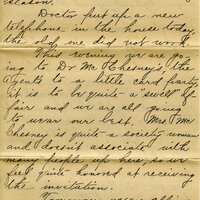 season.
Doctor put up a new
telephone in the house today
the old one did not work.
This evening we are go
ing to Dr McChesney's, the
agents to a little card party
it is to be quite a "swell" af
fair and we are all going
to wear our best. Mrs Mc
Chesney is quite a society woman
and doesn't associate with
many people up here, so we
feel quite honored at receiving
the invitation.